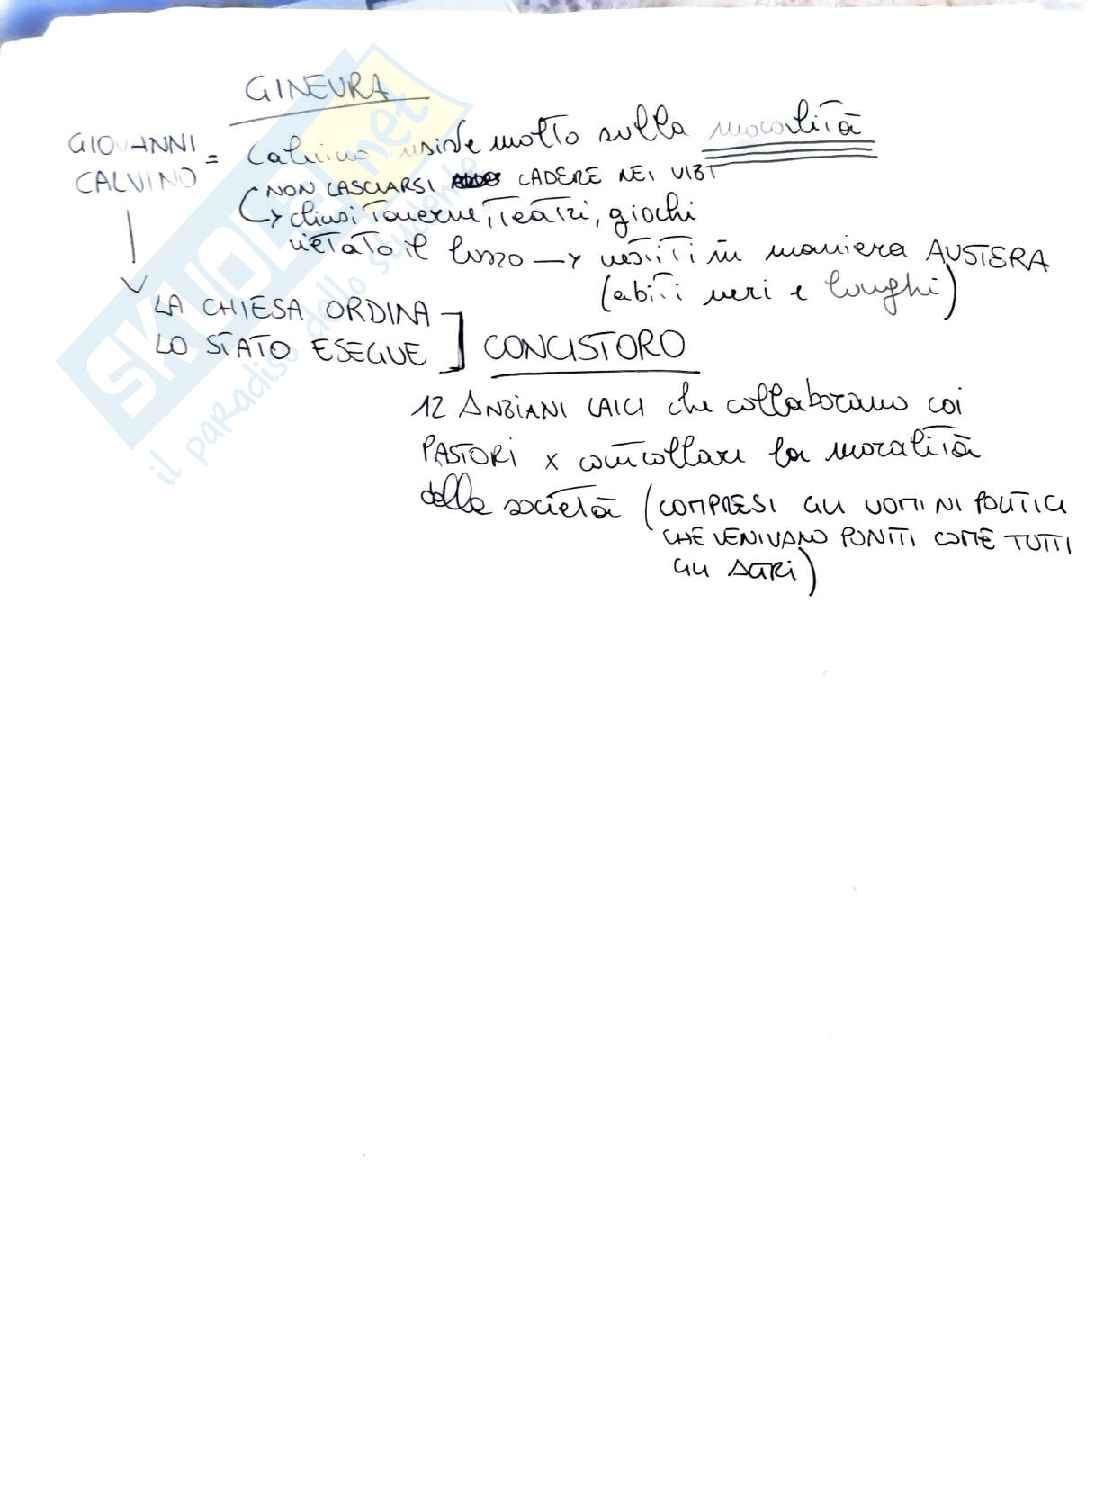 GINEVRA
GIOVANNI CALVINO = Calvino insiste molto sulla moralità
NON LASCIARSI CADERE NEI VIZI
↳ chiusi Taverne, Teatri, giochi
vietato il lusso → vestiti in maniera AUSTERA
(abiti neri e lunghi)
↓
LA CHIESA ORDINA
LO STATO ESEGUE ] CONCISTORO
12 ANZIANI LAICI che collaborano coi
PASTORI x controllare la moralità
della società (COMPRESI GLI UOMINI POLITICI
CHE VENIVANO PUNITI COME TUTTI
GLI ALTRI)
SKUOLA.net
il paradiso dello studente